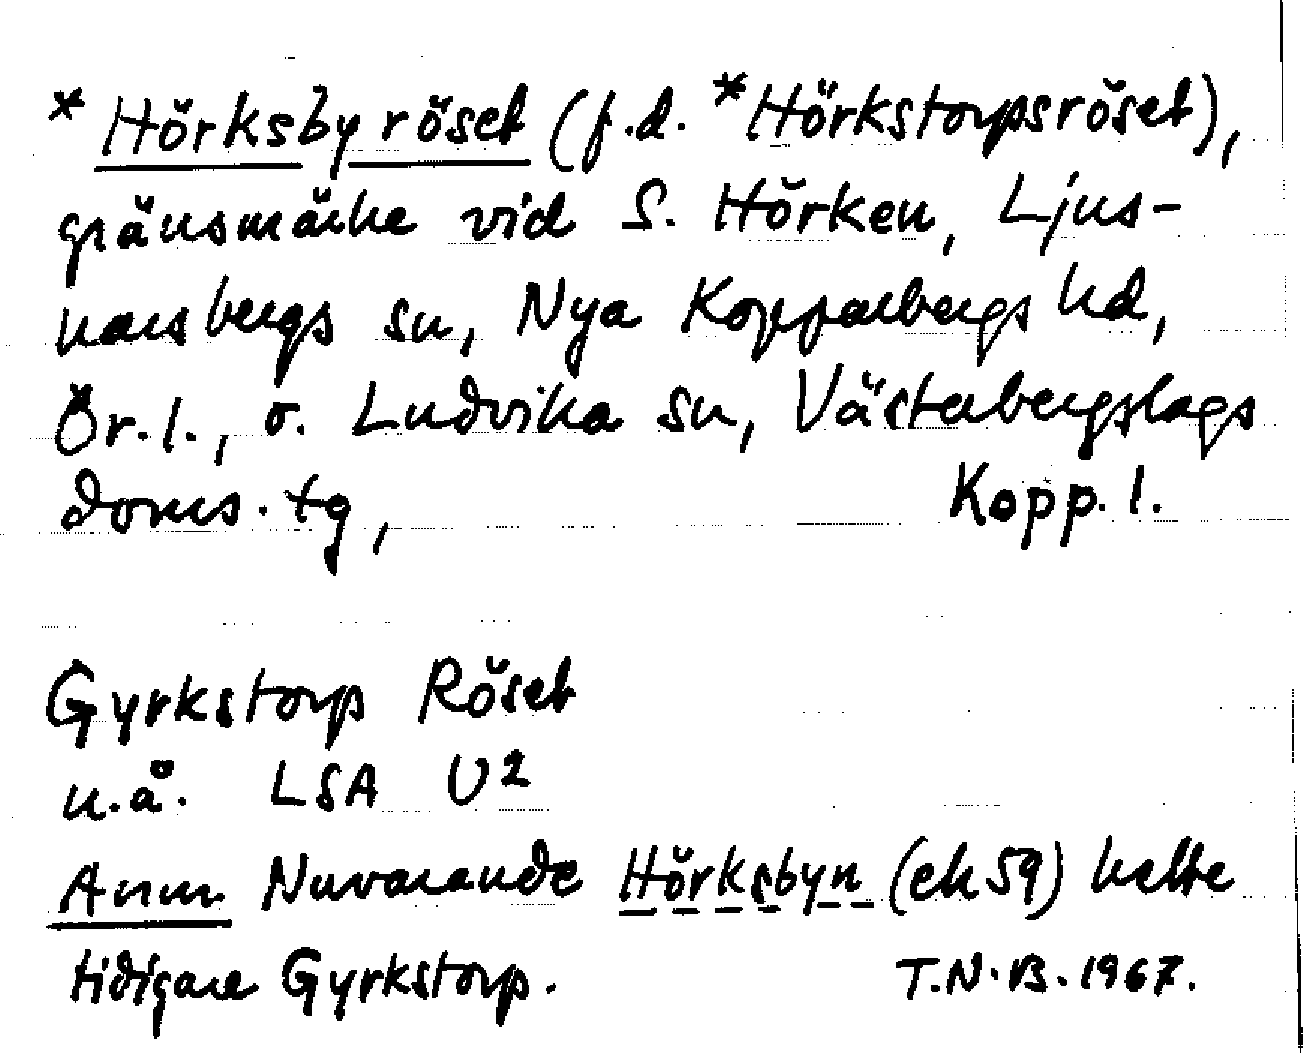 * Hörksby röset (f.d. *Hörkstorpsröset),
gränsmärke vid S. Hörken, Ljus-
narsbergs sn, Nya Kopparbergs hd,
Ör.l., o. Ludvika sn, Västerbergslags
doms. tg, Kopp. l.
Gyrkstorp Röset
u.å. LSA U2
Anm. Nuvarande Hörksbyn (ek 59) hette
tidigare Gyrkstorp. T.N.B. 1967.